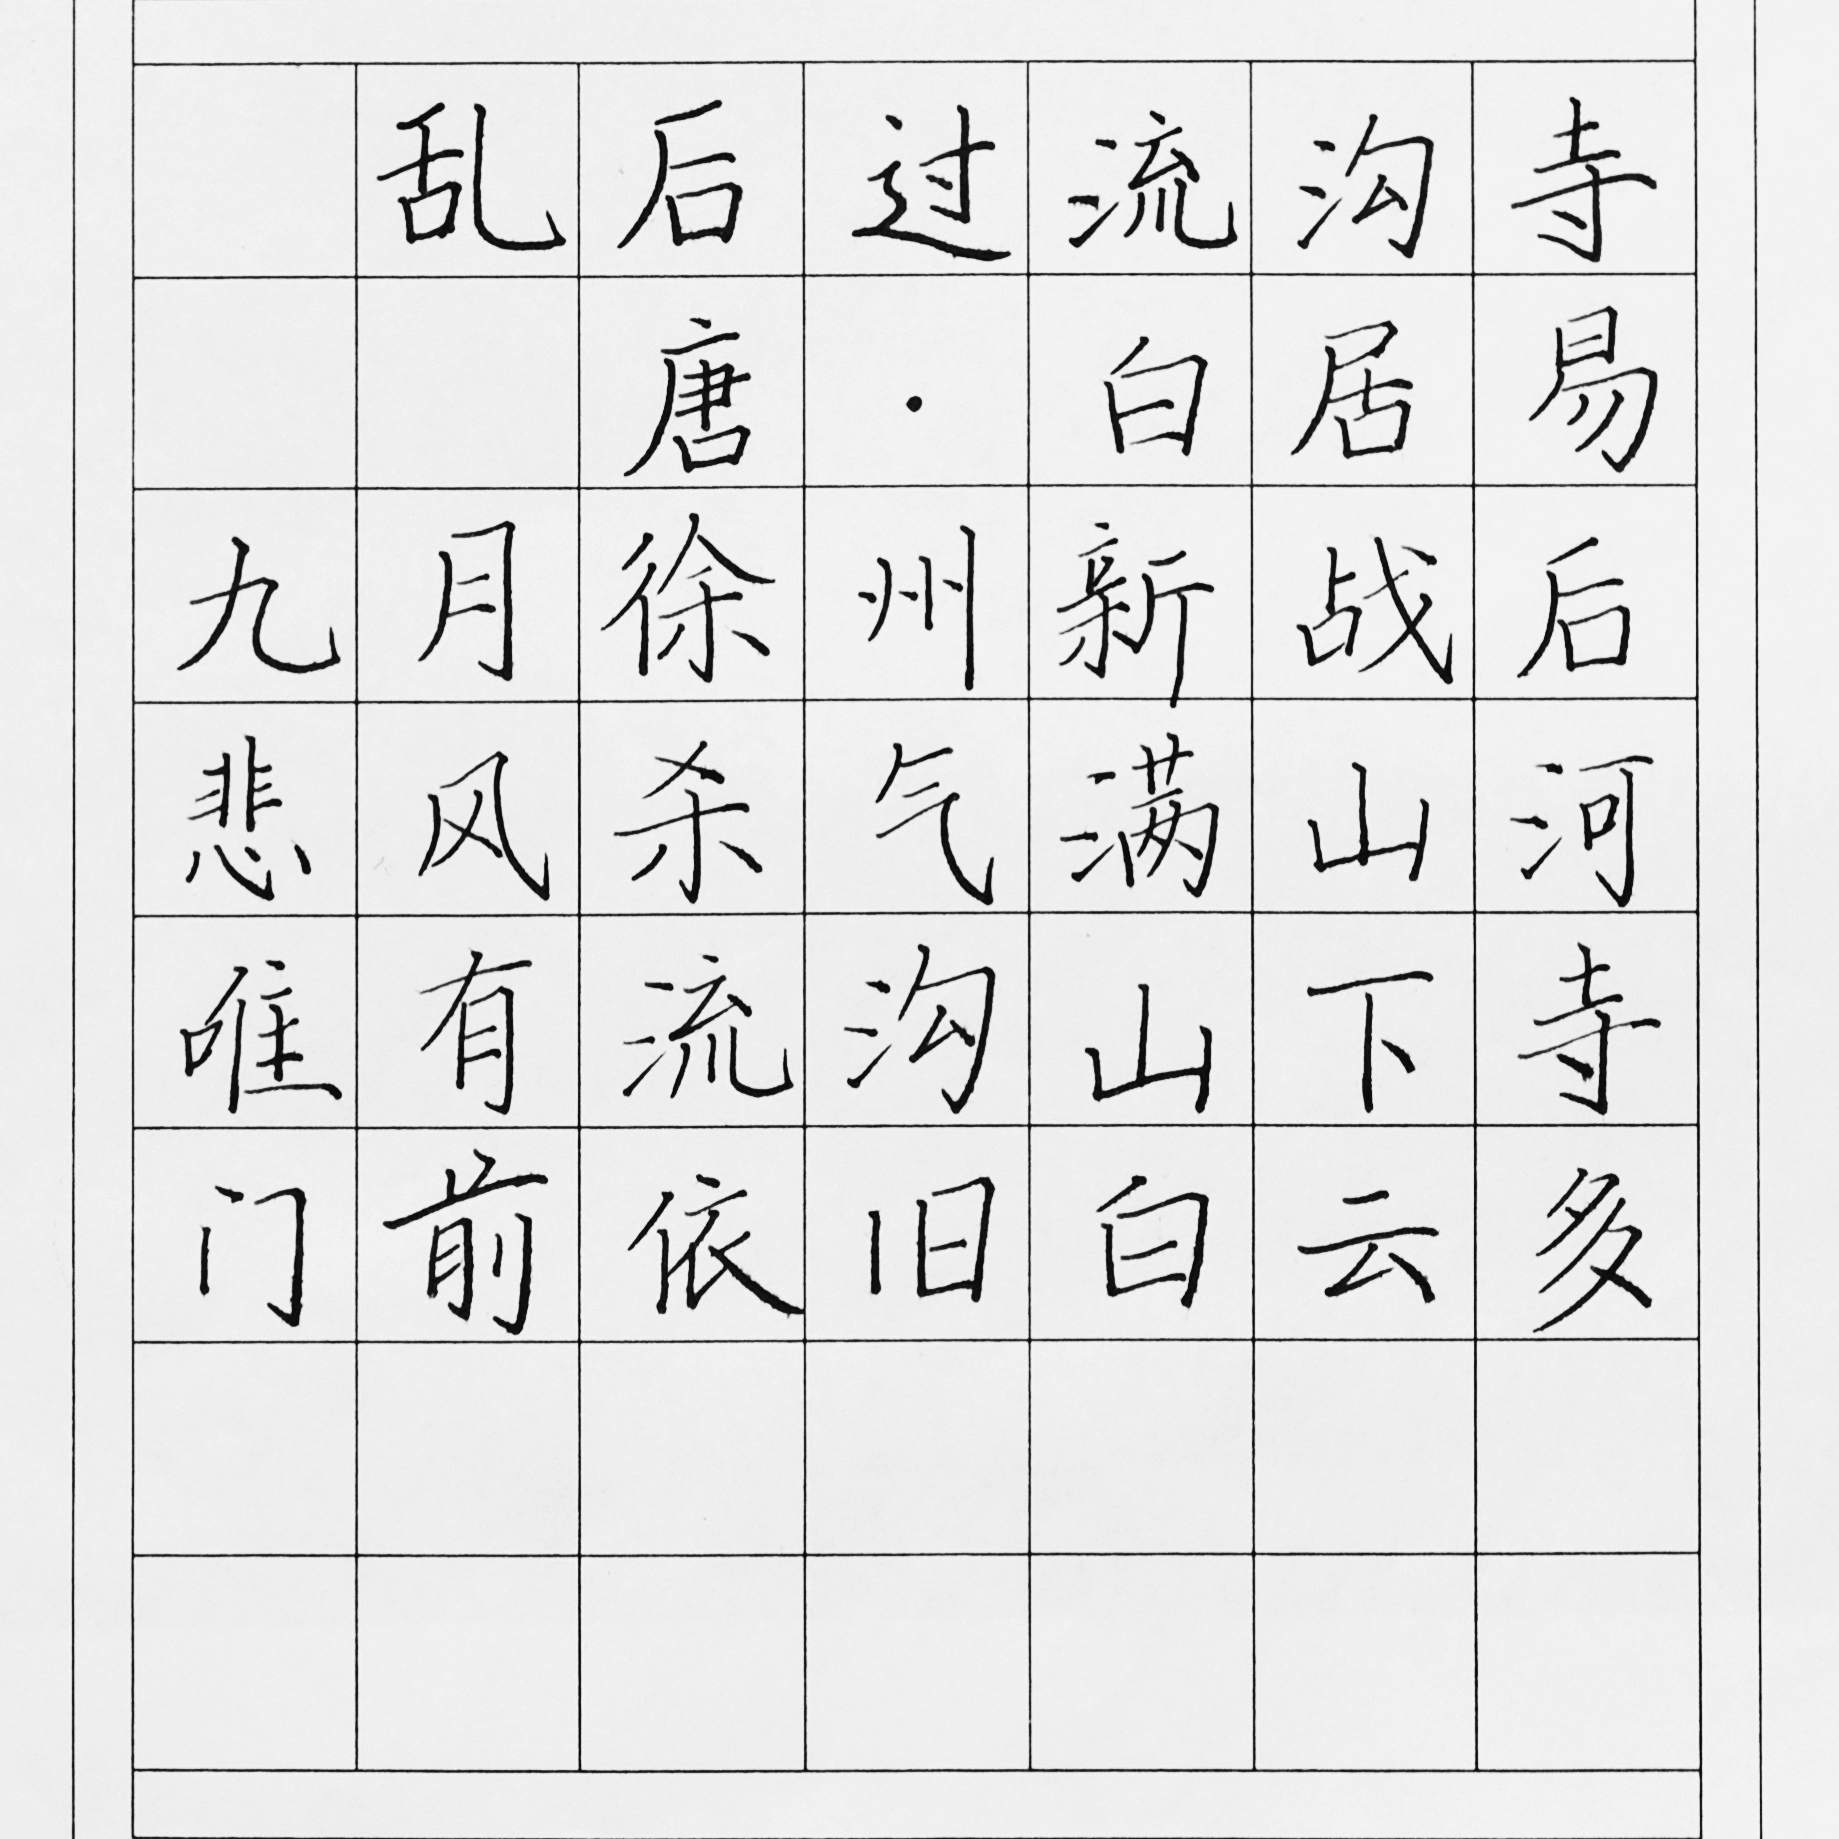 乱后过流沟寺
唐·白居易
九月徐州新战后
悲风杀气满山河
唯有流沟山下寺
门前依旧白云多